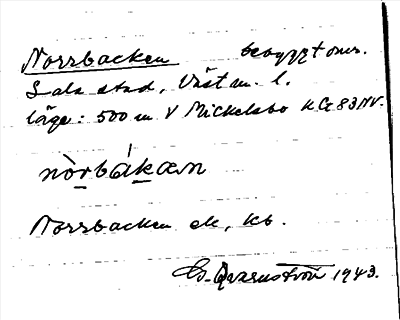 Norrbacken bebyggt omr.
Sala stad, Västm. l.
läge: 500 m V Mickelsbo KG 83 NV.
nòrbákæn
Norrbacken ek, kb.
G. Qvarnström 1943.